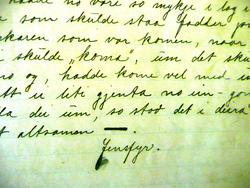 no vore so mykje i lag
som skulde staa fadder
karen som var komen, naar
skulde „koma", um det sku
og, hadde kome vel med
ei liti gjenta no un-
di um, so stod det i
altsamen —
Jensfyr.